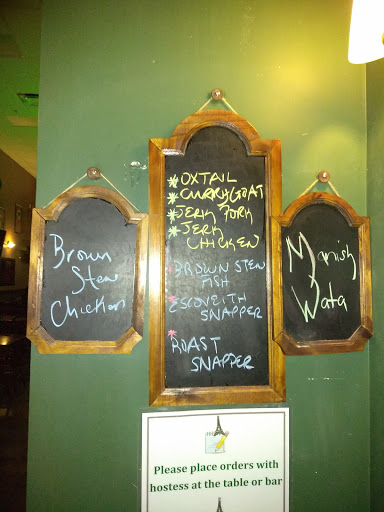 Brown
Stew
Chicken
*OXTAIL
*CURRY GOAT
*JERK PORK
*JERK
CHICKEN
*BROWN STEW
FISH
*ESCOVEITH
SNAPPER
*ROAST
SNAPPER
Manish
Wata
Please place orders with
hostess at the table or bar